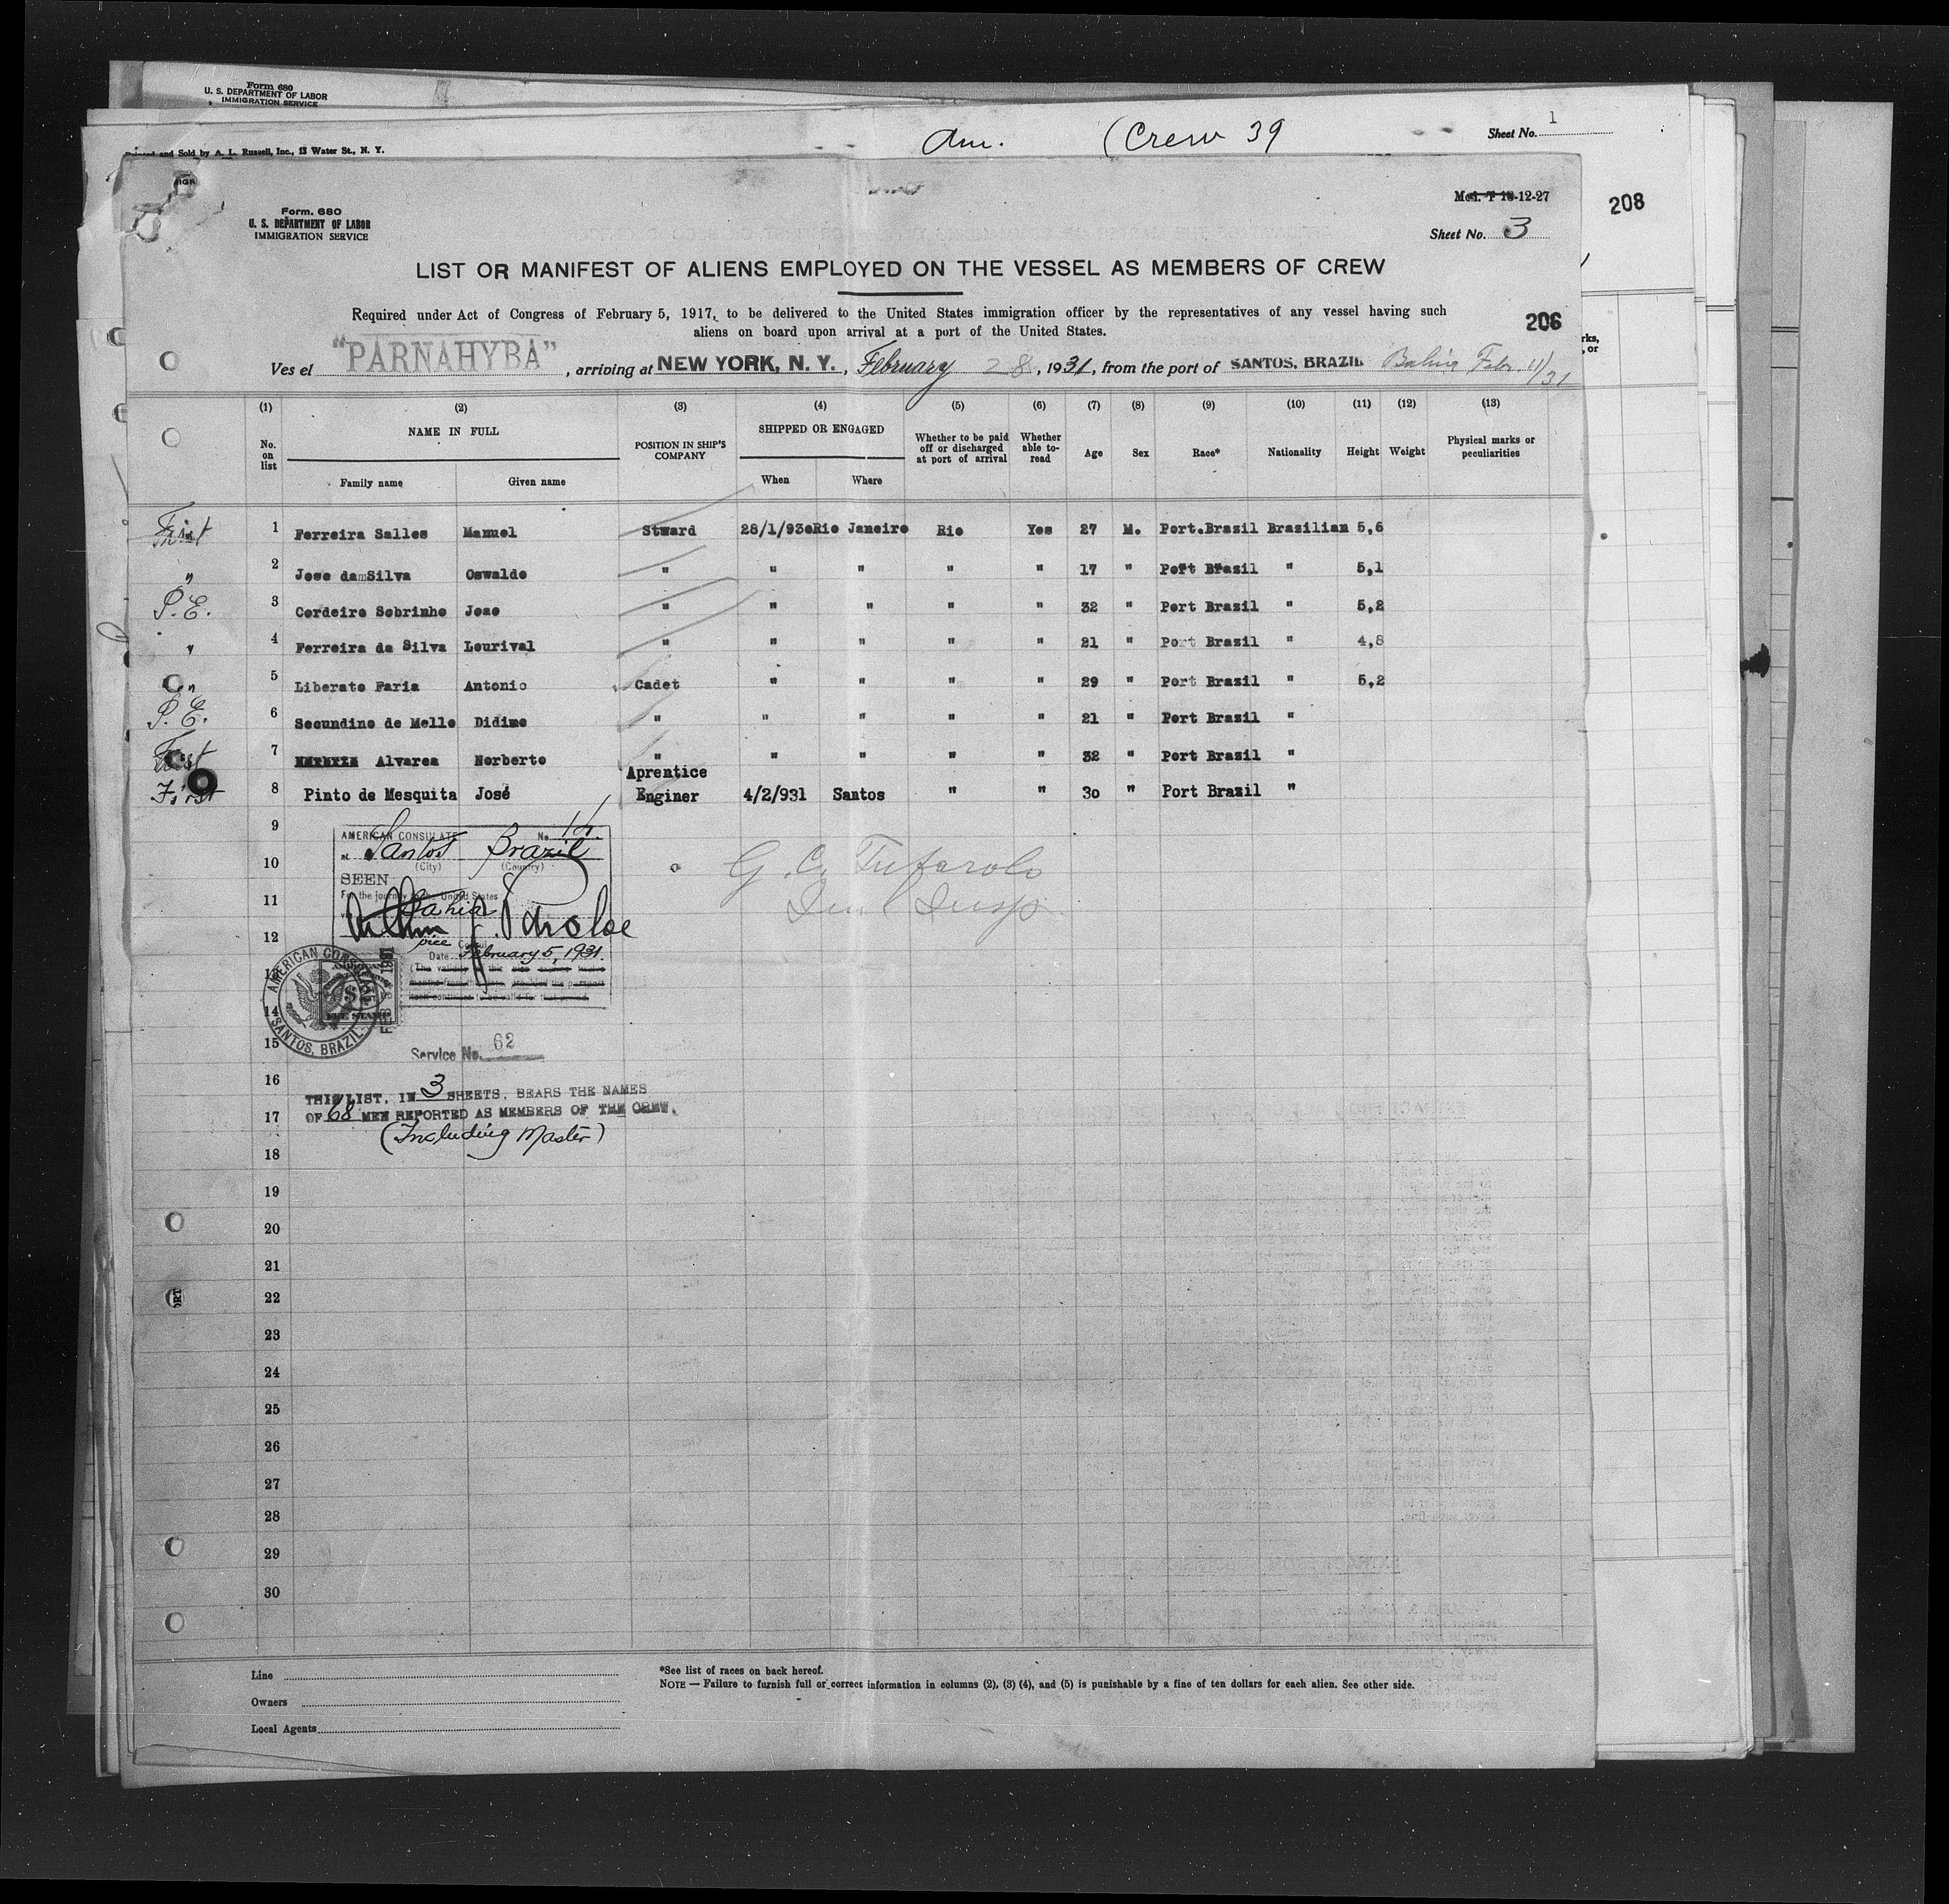 Form 680
U. S. DEPARTMENT OF LABOR
IMMIGRATION SERVICE
and Sold by A. L. Russell, Inc., 13 Water St., N. Y.
Am. (Crew 39
Sheet No. 1
208
Form. 680
U. S. DEPARTMENT OF LABOR
IMMIGRATION SERVICE
12-27
Sheet No. 3
LIST OR MANIFEST OF ALIENS EMPLOYED ON THE VESSEL AS MEMBERS OF CREW
Required under Act of Congress of February 5, 1917, to be delivered to the United States immigration officer by the representatives of any vessel having such
aliens on board upon arrival at a port of the United States.
206
Ves el "PARNAHYBA", arriving at NEW YORK, N. Y., February 28, 1931, from the port of SANTOS, BRAZIL Bahia Febr. 11/31
(1) (2) (3) (4) (5) (6) (7) (8) (9) (10) (11) (12) (13)
No. on list
NAME IN FULL
Family name Given name
POSITION IN SHIP'S COMPANY
SHIPPED OR ENGAGED
When Where
Whether to be paid off or discharged at port of arrival
Whether able to read
Age Sex Race* Nationality Height Weight
Physical marks or peculiarities
First 1 Ferreira Salles Manuel Stward 28/1/930 Rio Janeiro Rio Yes 27 M. Port.Brazil Brazilian 5,6
" 2 Jose da Silva Oswaldo " " " " " 17 " Port Brazil " 5,1
P.E. 3 Cordeiro Sobrinho Joao " " " " " 32 " Port Brazil " 5,2
" 4 Ferreira da Silva Lourival " " " " " 21 " Port Brazil " 4,8
" 5 Liberato Faria Antonio Cadet " " " " 29 " Port Brazil " 5,2
P.E. 6 Secundino de Mello Didimo " " " " " 21 " Port Brazil "
First 7 Alvarea Norberto " " " " " 32 " Port Brazil "
First 8 Pinto de Mesquita José Aprentice Enginer 4/2/931 Santos " " 30 " Port Brazil "
9
10
11
12
13
14
15
16
17
18
19
20
21
22
23
24
25
26
27
28
29
30
AMERICAN CONSULATE No. 14.
at Santos Brazil
(City) (Country)
SEEN
For the journey to the United States
Bahia
vice Consul
Date February 5, 1931.
AMERICAN CONSULATE
SANTOS, BRAZIL
FEE STAMP
G. C. Tufarolo
Service No. 62
THIS LIST, IN 3 SHEETS, BEARS THE NAMES
OF 68 MEN REPORTED AS MEMBERS OF THE CREW.
(Including Master)
Line
Owners
Local Agents
*See list of races on back hereof.
NOTE — Failure to furnish full or correct information in columns (2), (3) (4), and (5) is punishable by a fine of ten dollars for each alien. See other side.